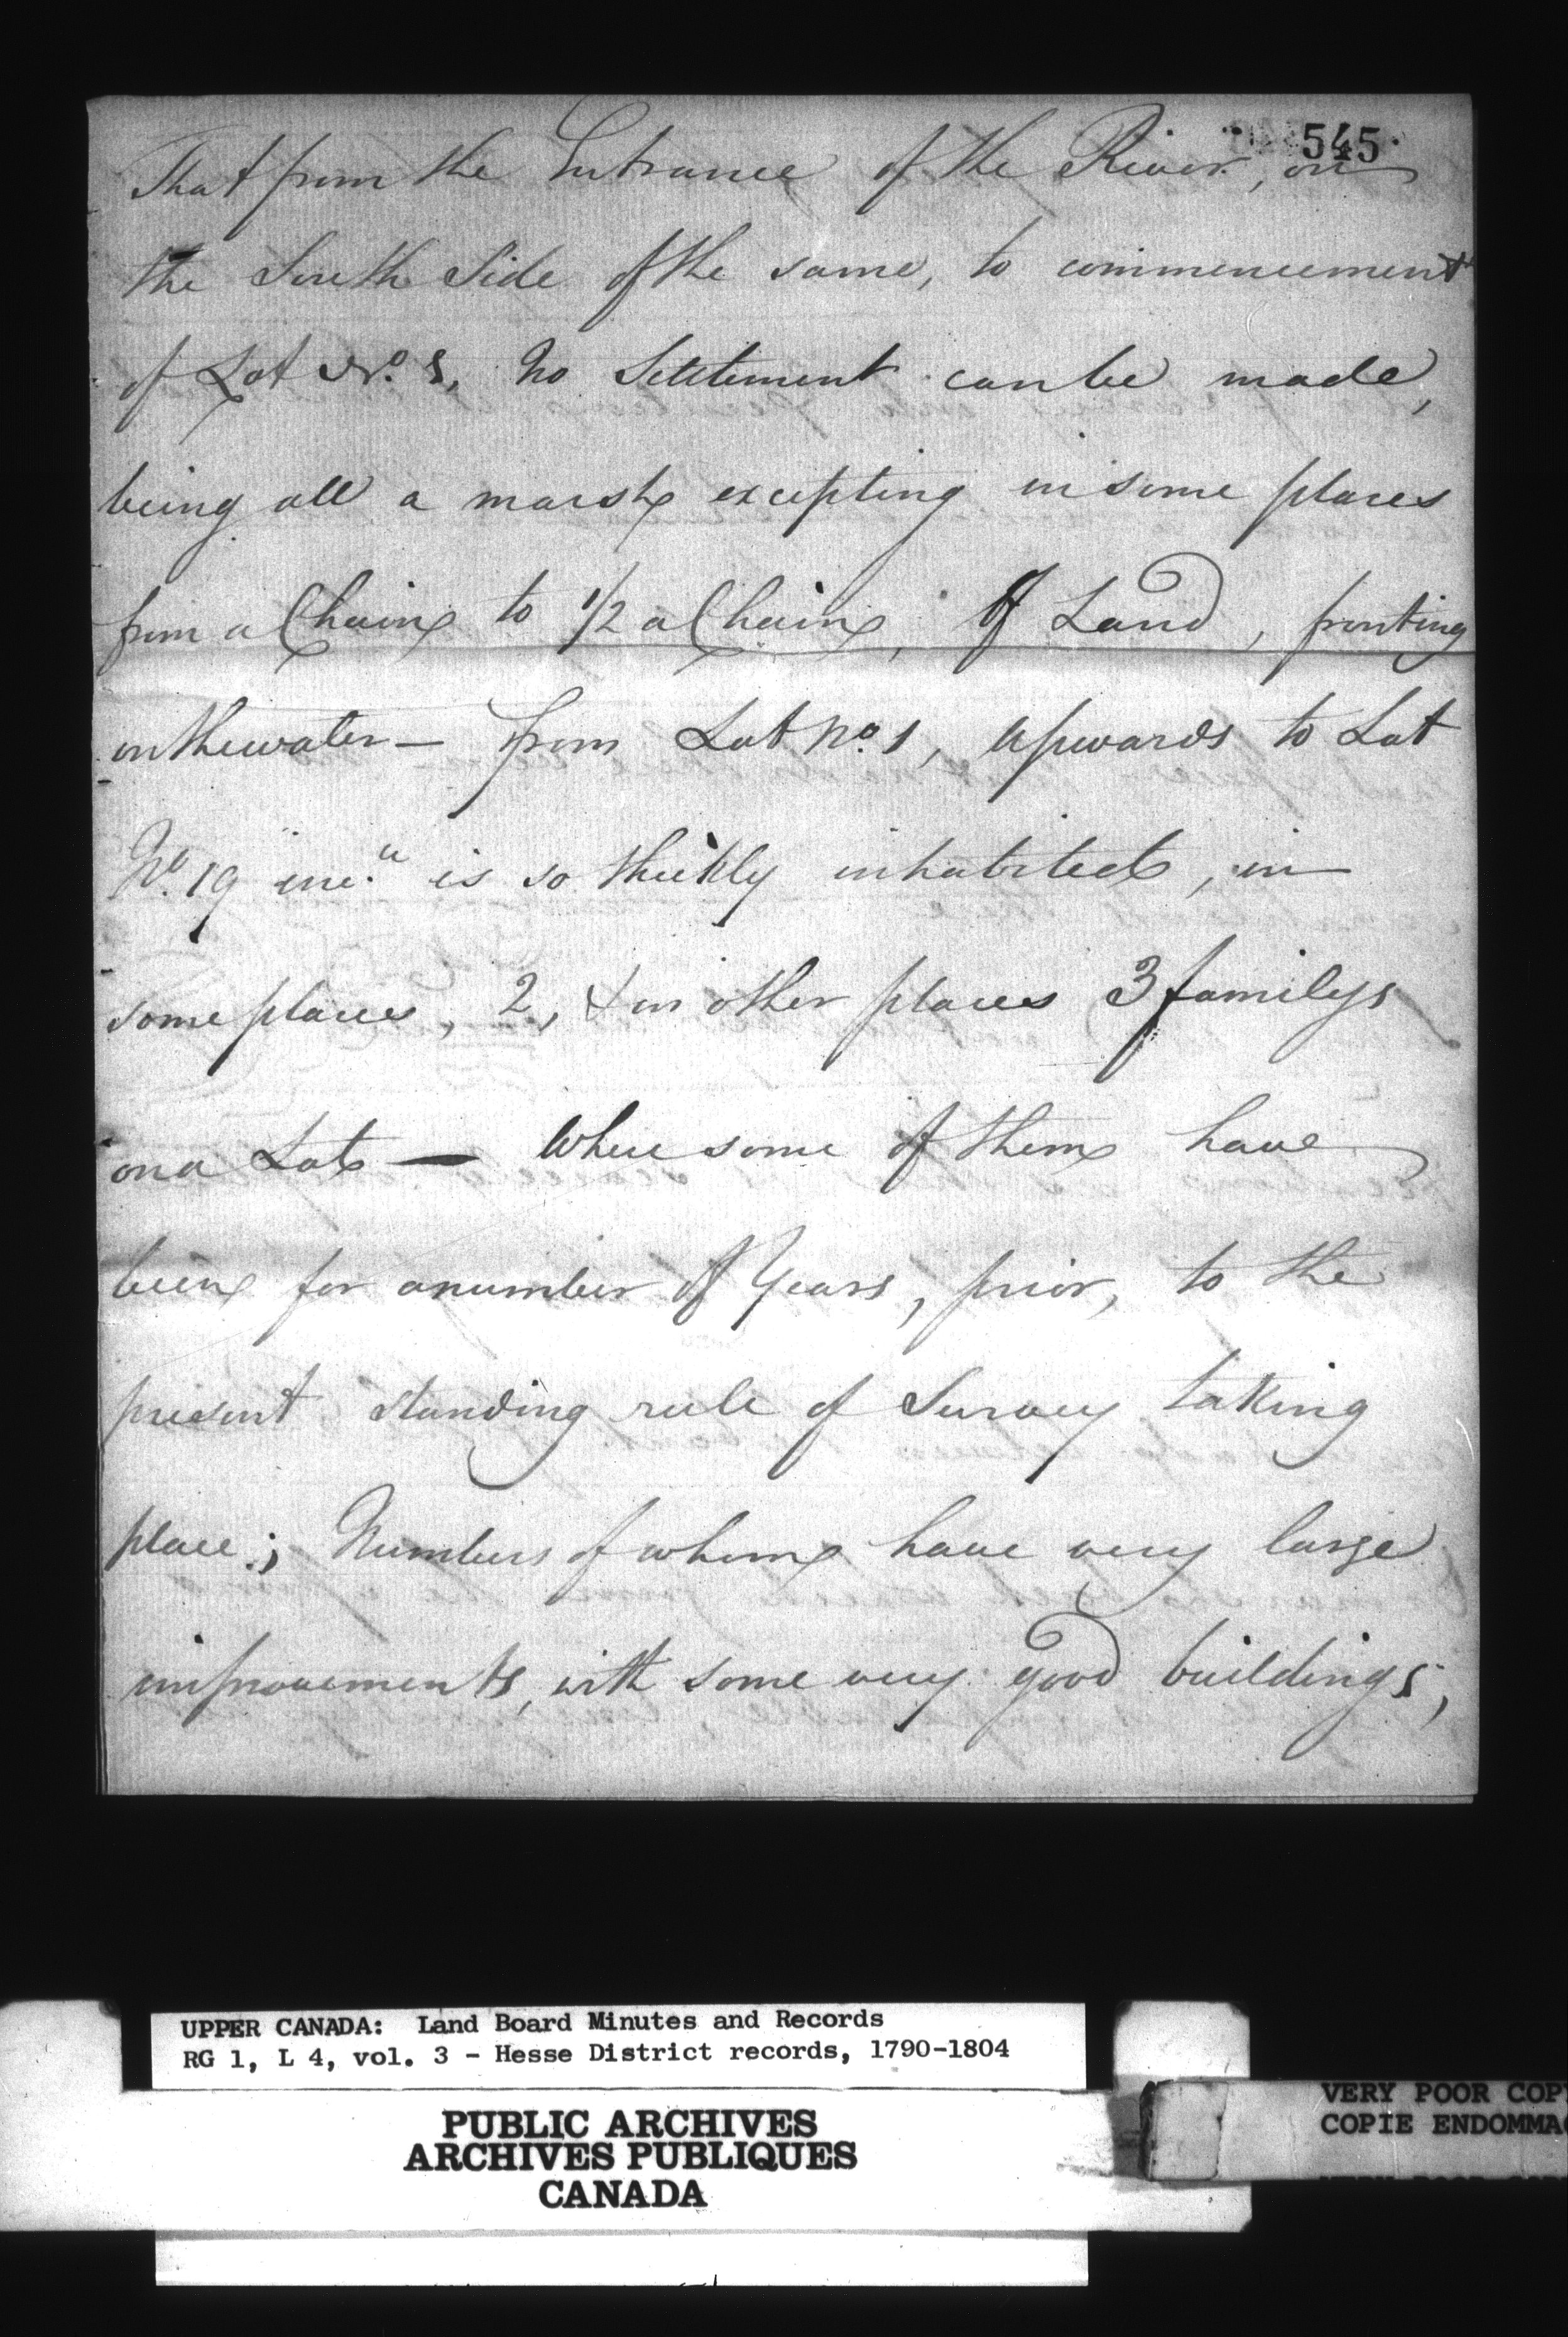 545
That from the Entrance of the River, on
the South Side of the same, to commencement
of Lot No. 1, No Settlement can be made,
being all a marsh excepting in some places
from a Chain to 1/2 a Chain, Of Land, fronting
on the water — from Lot No 1, upwards to Lot
No. 19 inc.e is so thickly inhabited, in
some places, 2, & in other places 3 familys
on a Lot — Where some of them have
been for a number of Years, prior, to the
present standing rule of Survey taking
place; Numbers of whom have very large
improvements, with some very good buildings;
UPPER CANADA: Land Board Minutes and Records
RG 1, L 4, vol. 3 - Hesse District records, 1790-1804
PUBLIC ARCHIVES
ARCHIVES PUBLIQUES
CANADA
VERY POOR COP
COPIE ENDOMMA